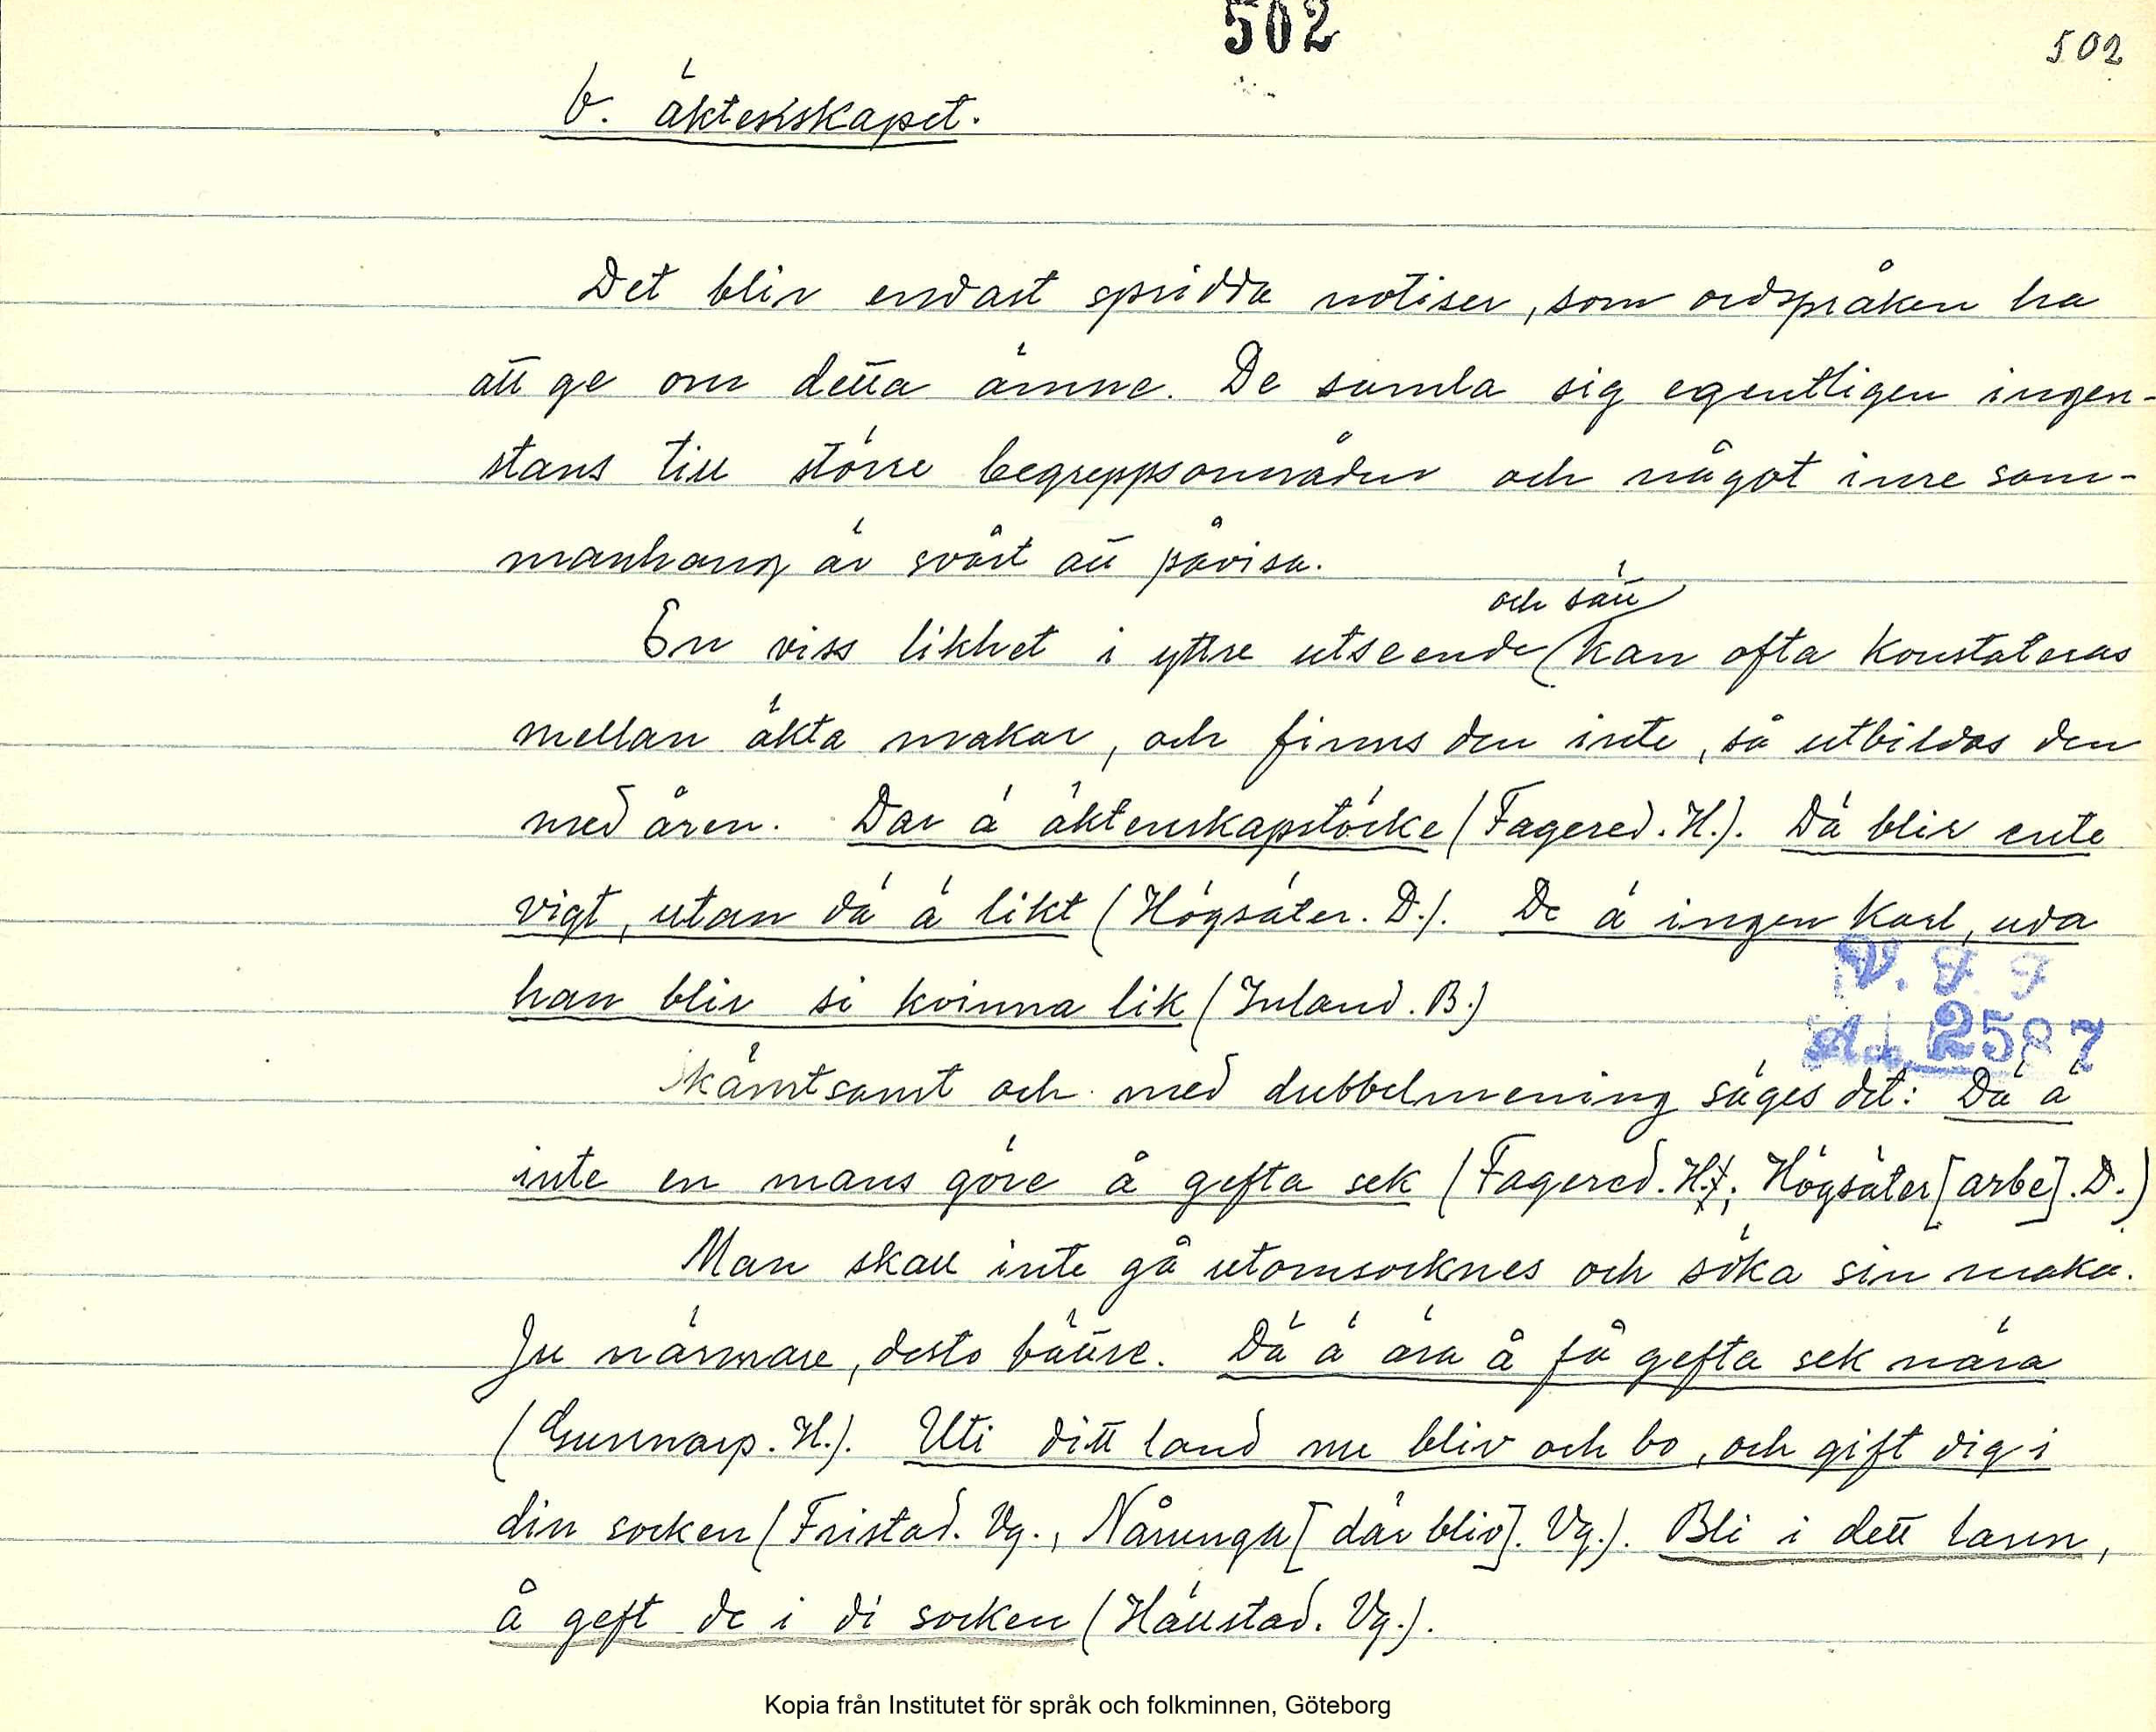 502
502
b. äktenskapet.
Det blir endast spridda notiser, som ordspråken ha
att ge om detta ämne. De samla sig egentligen ingen-
stans till större begreppsområden och något inre sam-
manhang är svårt att påvisa.
och sätt
En viss likhet i yttre utseende kan ofta konstateras
mellan äkta makar, och finns den inte, så utbildas den
med åren. Dar ä äktenskapstöcke (Fagered. H.). Dä blir ente
vigt, utan dä ä likt (Högsäter. D.). De ä ingen karl, uda
han blir si kvinna lik (Inland. B.)
V. F. F
A. 2587
Skämtsamt och med dubbelmening säges det: Dä ä
inte en mans göre å gefta sek (Fagered. H.; Högsäter [arbe]. D.)
Man skall inte gå utomsocknes och söka sin maka.
Ju närmare, desto bättre. Dä ä ära å få gefta sek nära
(Gunnarp. H.). Uti ditt land nu bliv och bo, och gift dig i
din socken (Fristad. Vg., Nårunga [där bliv]. Vg.). Bli i dett lann,
å geft de i di socken (Hällstad. Vg.).
Kopia från Institutet för språk och folkminnen, Göteborg